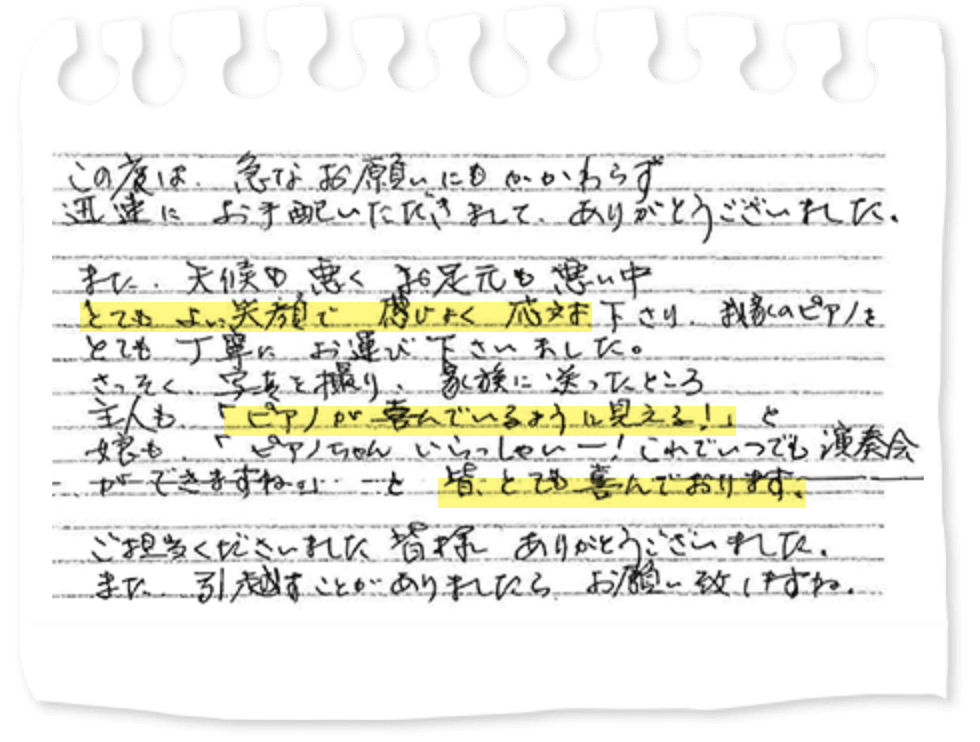 この度は、急なお願いにもかかわらず
迅速に お手配いただきまして、ありがとうございました。
また、天候も悪く お足元も悪い中
とても よい笑顔で 感じよく 応対下さり、我家のピアノを
とても 丁寧に お運び下さいました。
さっそく、写真を撮り、家族に送ったところ
主人も、「ピアノが喜んでいるように見える!」と
娘も、「ピアノちゃん いらっしゃいー!これでいつでも演奏会
ができますね。」 と 皆、とても喜んでおります。
ご担当くださいました 皆様 ありがとうございました。
また、引越すことがありましたら お願い致しますね。